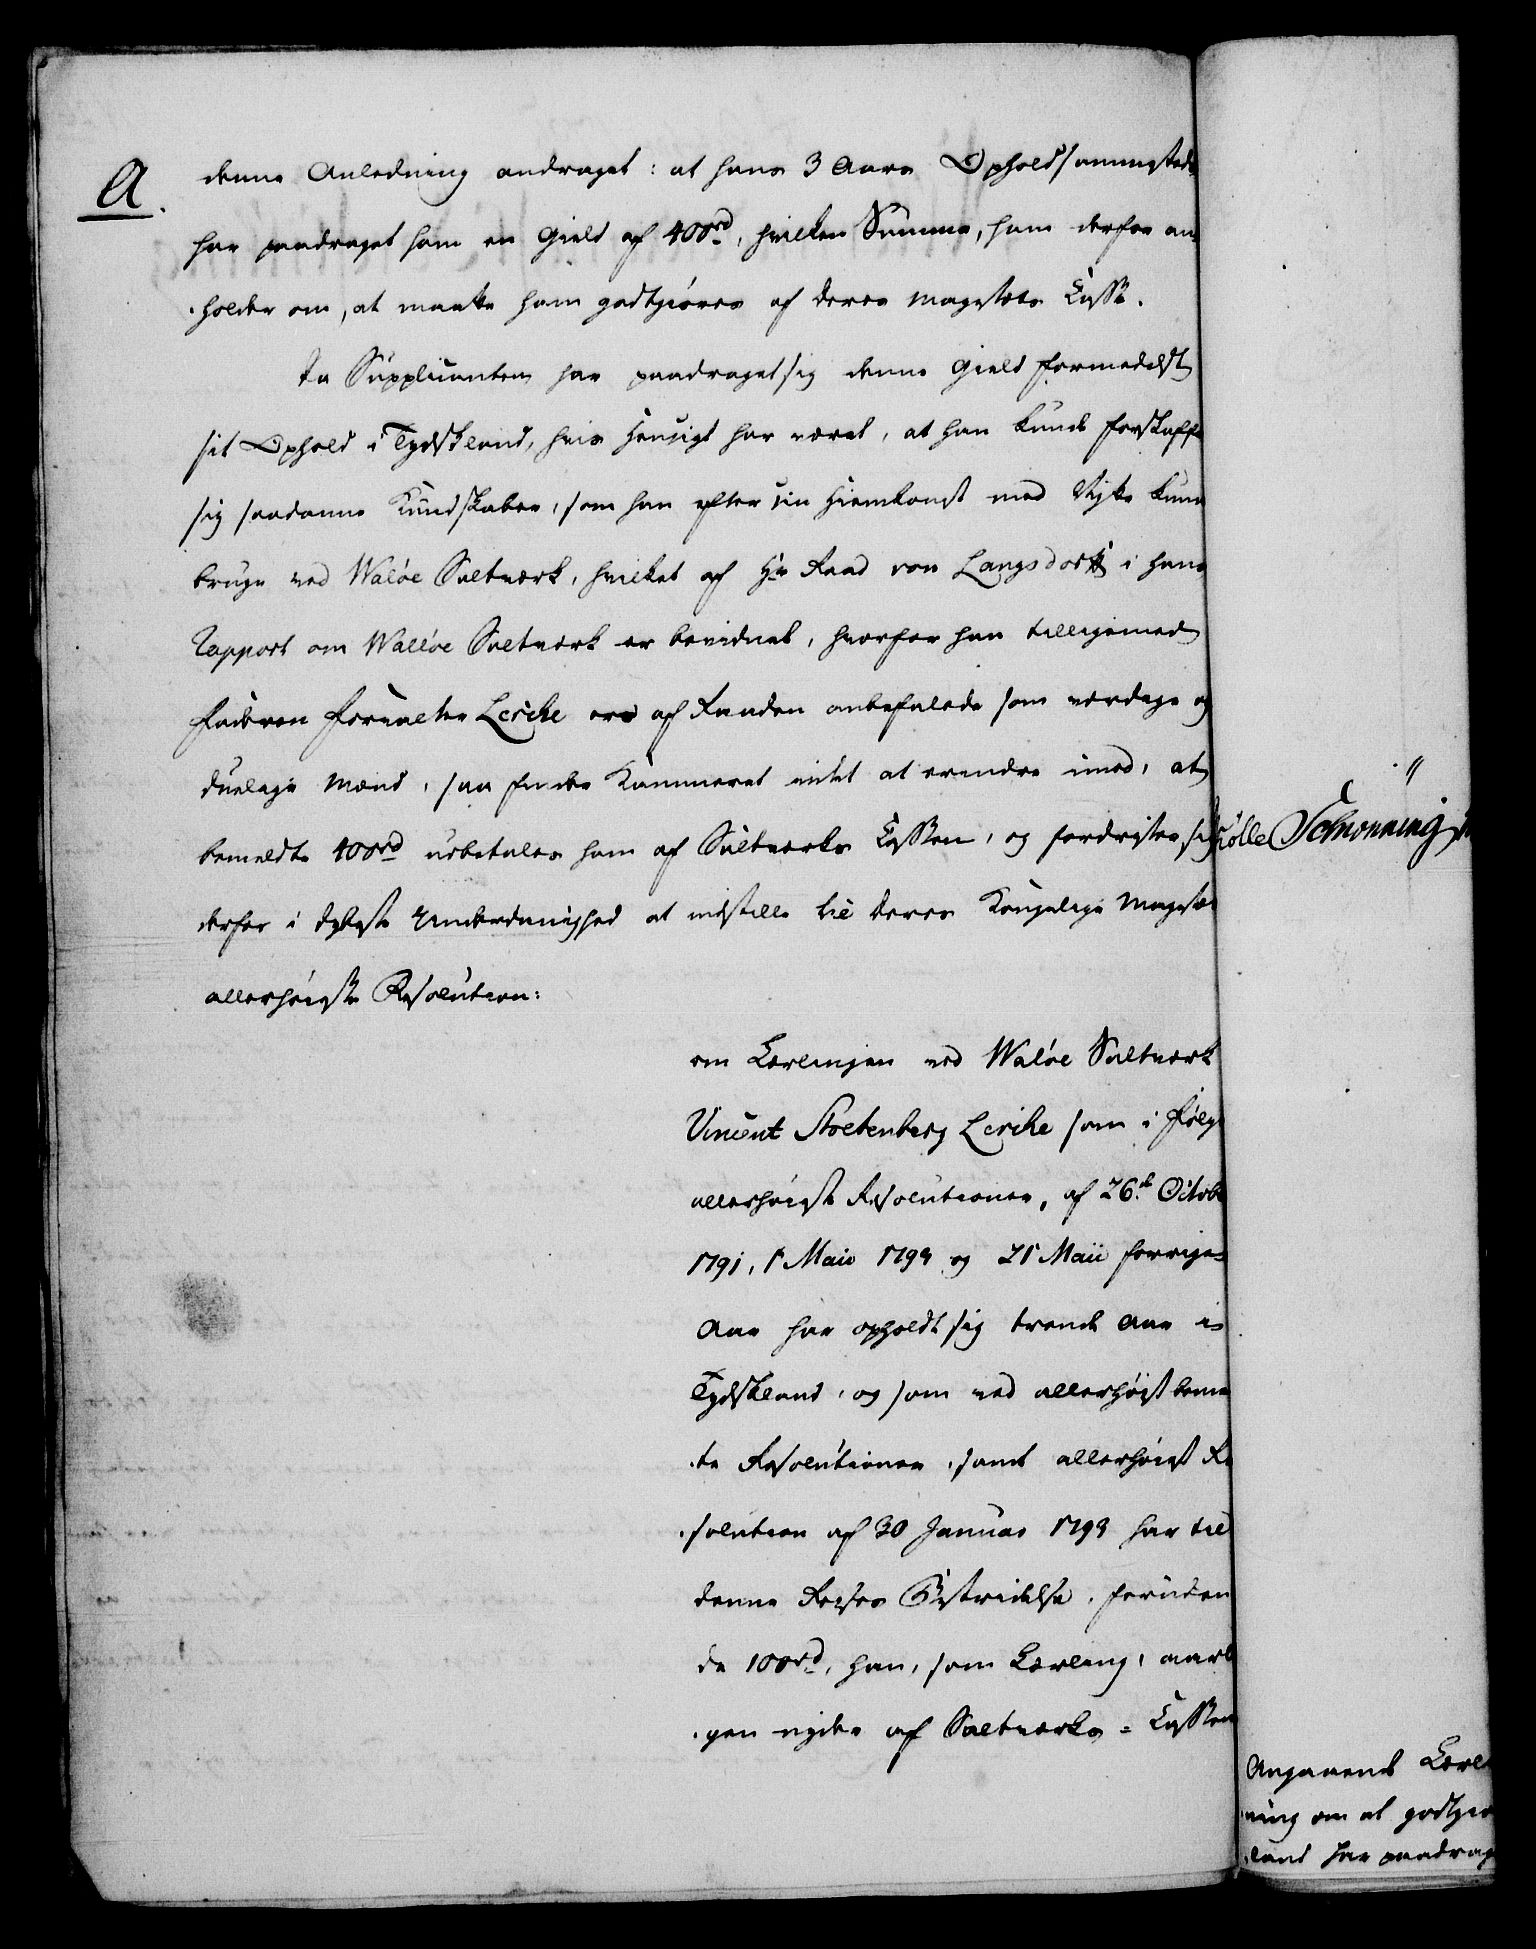 A.
denne Anledning andraget: at hans 3 Aars Ophold sammesteds
har paadraget ham en Gield af 400rd, hvilken Summa, han derfor an-
holder om, at maatte ham godtgiøres af Deres Majestæts Casse.
Da Supplicanten har paadraget sig denne Gield formedelst
sit Ophold i Tydskland, hvis Hensigt har været, at han kunde forskaffe
sig saadanne Kundskaber, som han efter sin Hiemkomst med Nytte kunde
bruge ved Waløe Saltværk, hvilket af Hr Raad von Langsdorff i hans
Rapport om Walløe Saltværk er bevidnet, hvorfor han tilligemed
Faderen Forvalter Lerche ere af Raaden anbefalede som værdige og
duelige Mænd, saa finder Kammeret intet at erindre imod, at
bemeldte 400rd udbetales ham af Saltværks Cassen, og fordrister sig
derfor i dybeste Underdanighed at indstille til Deres Kongelige Majestæts
allerhøieste Resolution:
om Lærlingen ved Waløe Saltværk
Vincent Stoltenberg Lerche som i Følge
allerhøieste Resolutioner, af 26d Octobr
1791, 1 Maii 1793 og 21 Maii forrige
Aar har opholdt sig trende Aar i
Tydskland, og som ved allerhøist bemeld-
te Resolutioner, samt allerhøiest Re-
solution af 30 Januar 1793 har til
denne Reises Bestridelse, foruden
de 100rd, han, som Lærling, aarli-
gen nyder af Saltværks-Cassen
Schønning
Angaaende Lærl
ning om at godtgiø
land har paadrag